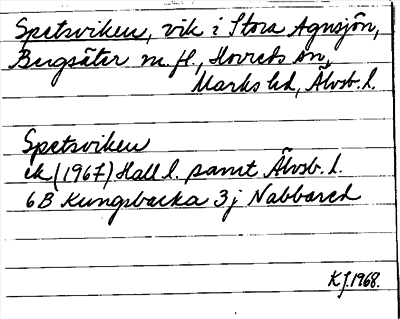 Spetsviken, vik i Stora Agnsjön,
Bergsäter m. fl., Horreds sn,
Marks hd, Älvsb. l.
Spetsviken
ek (1967) Hall l. samt Älvsb. l.
6B Kungsbacka 3j Nabbared
KJ. 1968.